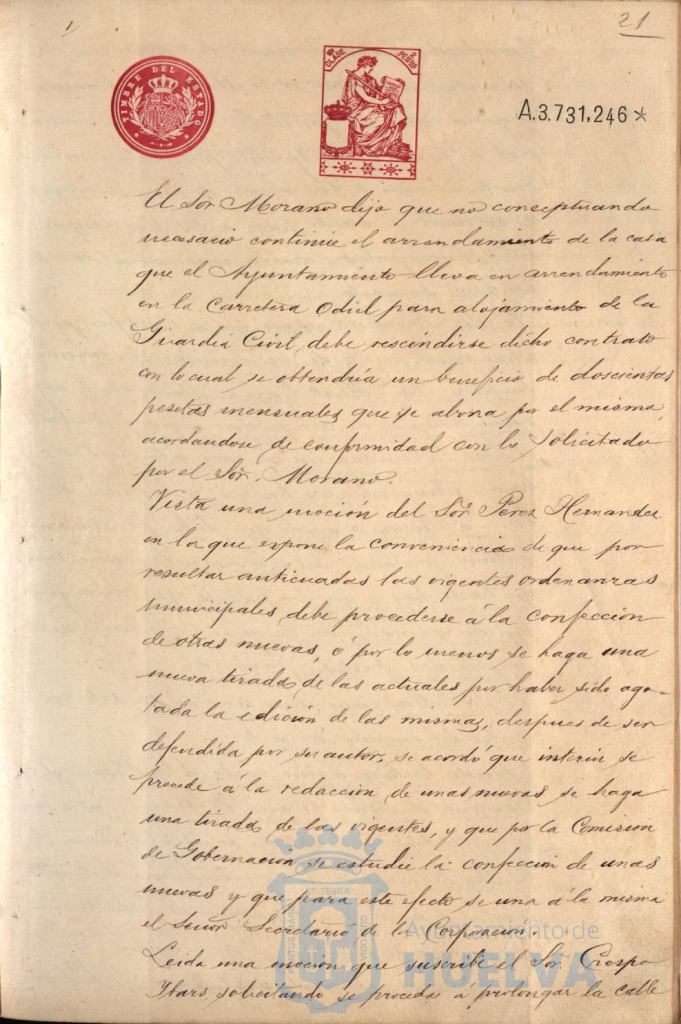 21
TIMBRE DEL ESTADO
CLASE
PESETAS
A.3.731,246*
El Sor. Morano dijo que no conceptuando
necesario continue el arrendamiento de la casa
que el Ayuntamiento lleva en arrendamiento
en la Carretera Odiel para alojamiento de la
Guardia Civil, debe rescindirse dicho contrato
con lo cual se obtendría un beneficio de doscientas
pesetas mensuales que se abona por el misma,
acordandose de conformidad con lo solicitado
por el Sor. Morano.
Vista una moción del Sor. Perez Hernandez
en la que expone la conveniencia de que por
resultar anticuadas las vigentes ordenanzas
municipales, debe procederse á la confección
de otras nuevas, ó por lo menos se haga una
nueva tirada de las actuales por haber sido ago-
tada la edición de las mismas, despues de ser
defendida por su autor, se acordó que interin se
procede á la redacción de unas nuevas se haga
una tirada de las vigentes, y que por la Comision
de Gobernacion se estudie la confección de unas
nuevas y que para este efecto se una á la misma
el Señor Secretario de la Corporacion.
Leida una moción que suscribe el Sor. Crespo
Ybars, solicitando se proceda á prolongar la calle
Ayuntamiento de
HUELVA